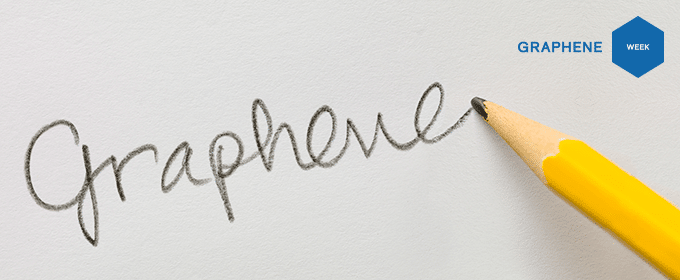 GRAPHENE WEEK
Graphene